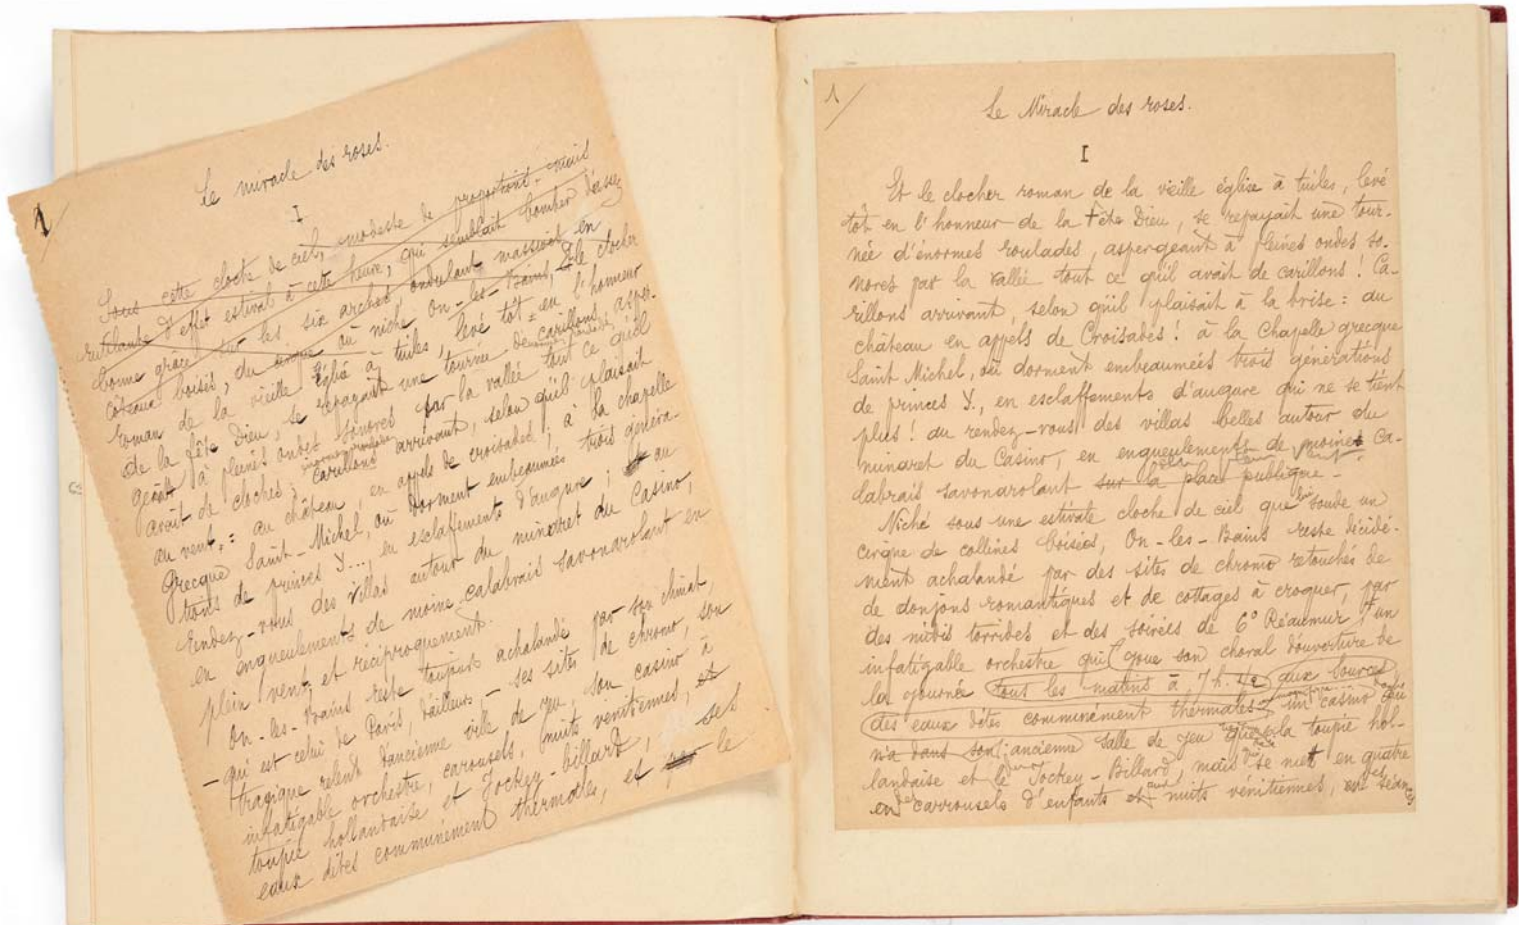 1
Le miracle des roses.
I
Sous cette cloche de ciel, modeste de proportions mais
rutilante d'effet estival à cette heure, qui semblait bomber d'assez
bonne grâce sur les six arches ondulant massives en
côteaux boisés, du cirque où niche On-les-Bains, Et le clocher
roman de la vieille Église à tuiles, levé tôt en l'honneur
de la fête Dieu, se repayait une tournée de carillons, asper-
geant à pleines ondes sonores par la vallée tout ce qu'il
avait de cloches; carillons arrivant, selon qu'il plaisait
au vent, : au château, en appels de croisades; à la chapelle
Grecque Saint-Michel, où dorment embeaumées trois généra-
tions de princes Y..., en esclaffements d'augure; au
rendez-vous des villas autour du minaret du Casino,
en engueulements de moine calabrais savonarolant en
plein vent et réciproquement.
On-les-Bains reste toujours achalandé par son climat,
- qui est celui de Paris, d'ailleurs - ses sites de chromo, son
tragique relent d'ancienne ville de jeu, son casino à
infatigable orchestre, carousels, nuits vénitiennes, et
toupie hollandaise et Jockey-billard, ses
eaux dites communément thermales, et par le
1
Le Miracle des roses.
I
Et le clocher roman de la vieille église à tuiles, levé
tôt en l'honneur de la Fête Dieu, se repayait une tour-
née d'énormes roulades, aspergeant à pleines ondes so-
nores par la vallée tout ce qu'il avait de carillons! Ca-
rillons arrivant, selon qu'il plaisait à la brise: du
château en appels de Croisades! à la Chapelle grecque
Saint Michel, où dorment embeaumées trois générations
de princes Y., en esclaffements d'augure qui ne se tient
plus! au rendez-vous des villas belles autour du
minaret du Casino, en engueulements de moine Ca-
labrais savonarolant sur la place publique.
Niché sous une estivale cloche de ciel que lui soude un
cirque de collines boisées, On-les-Bains reste décidé-
ment achalandé par des sites de chromo retouchés de
de donjons romantiques et de cottages à croquer, par
des midis torrides et des soirées de 6° Réaumur, d'un
infatigable orchestre qui joue son choral d'ouverture de
la journée tous les matins à 7h. 1/2 aux sources
des eaux dites communément thermales, un casino qui
n'a dans son ancienne salle de jeu que la toupie hol-
landaise et le Jockey-Billard, mais se met en quatre
en carrousels d'enfants et nuits vénitiennes, en séan